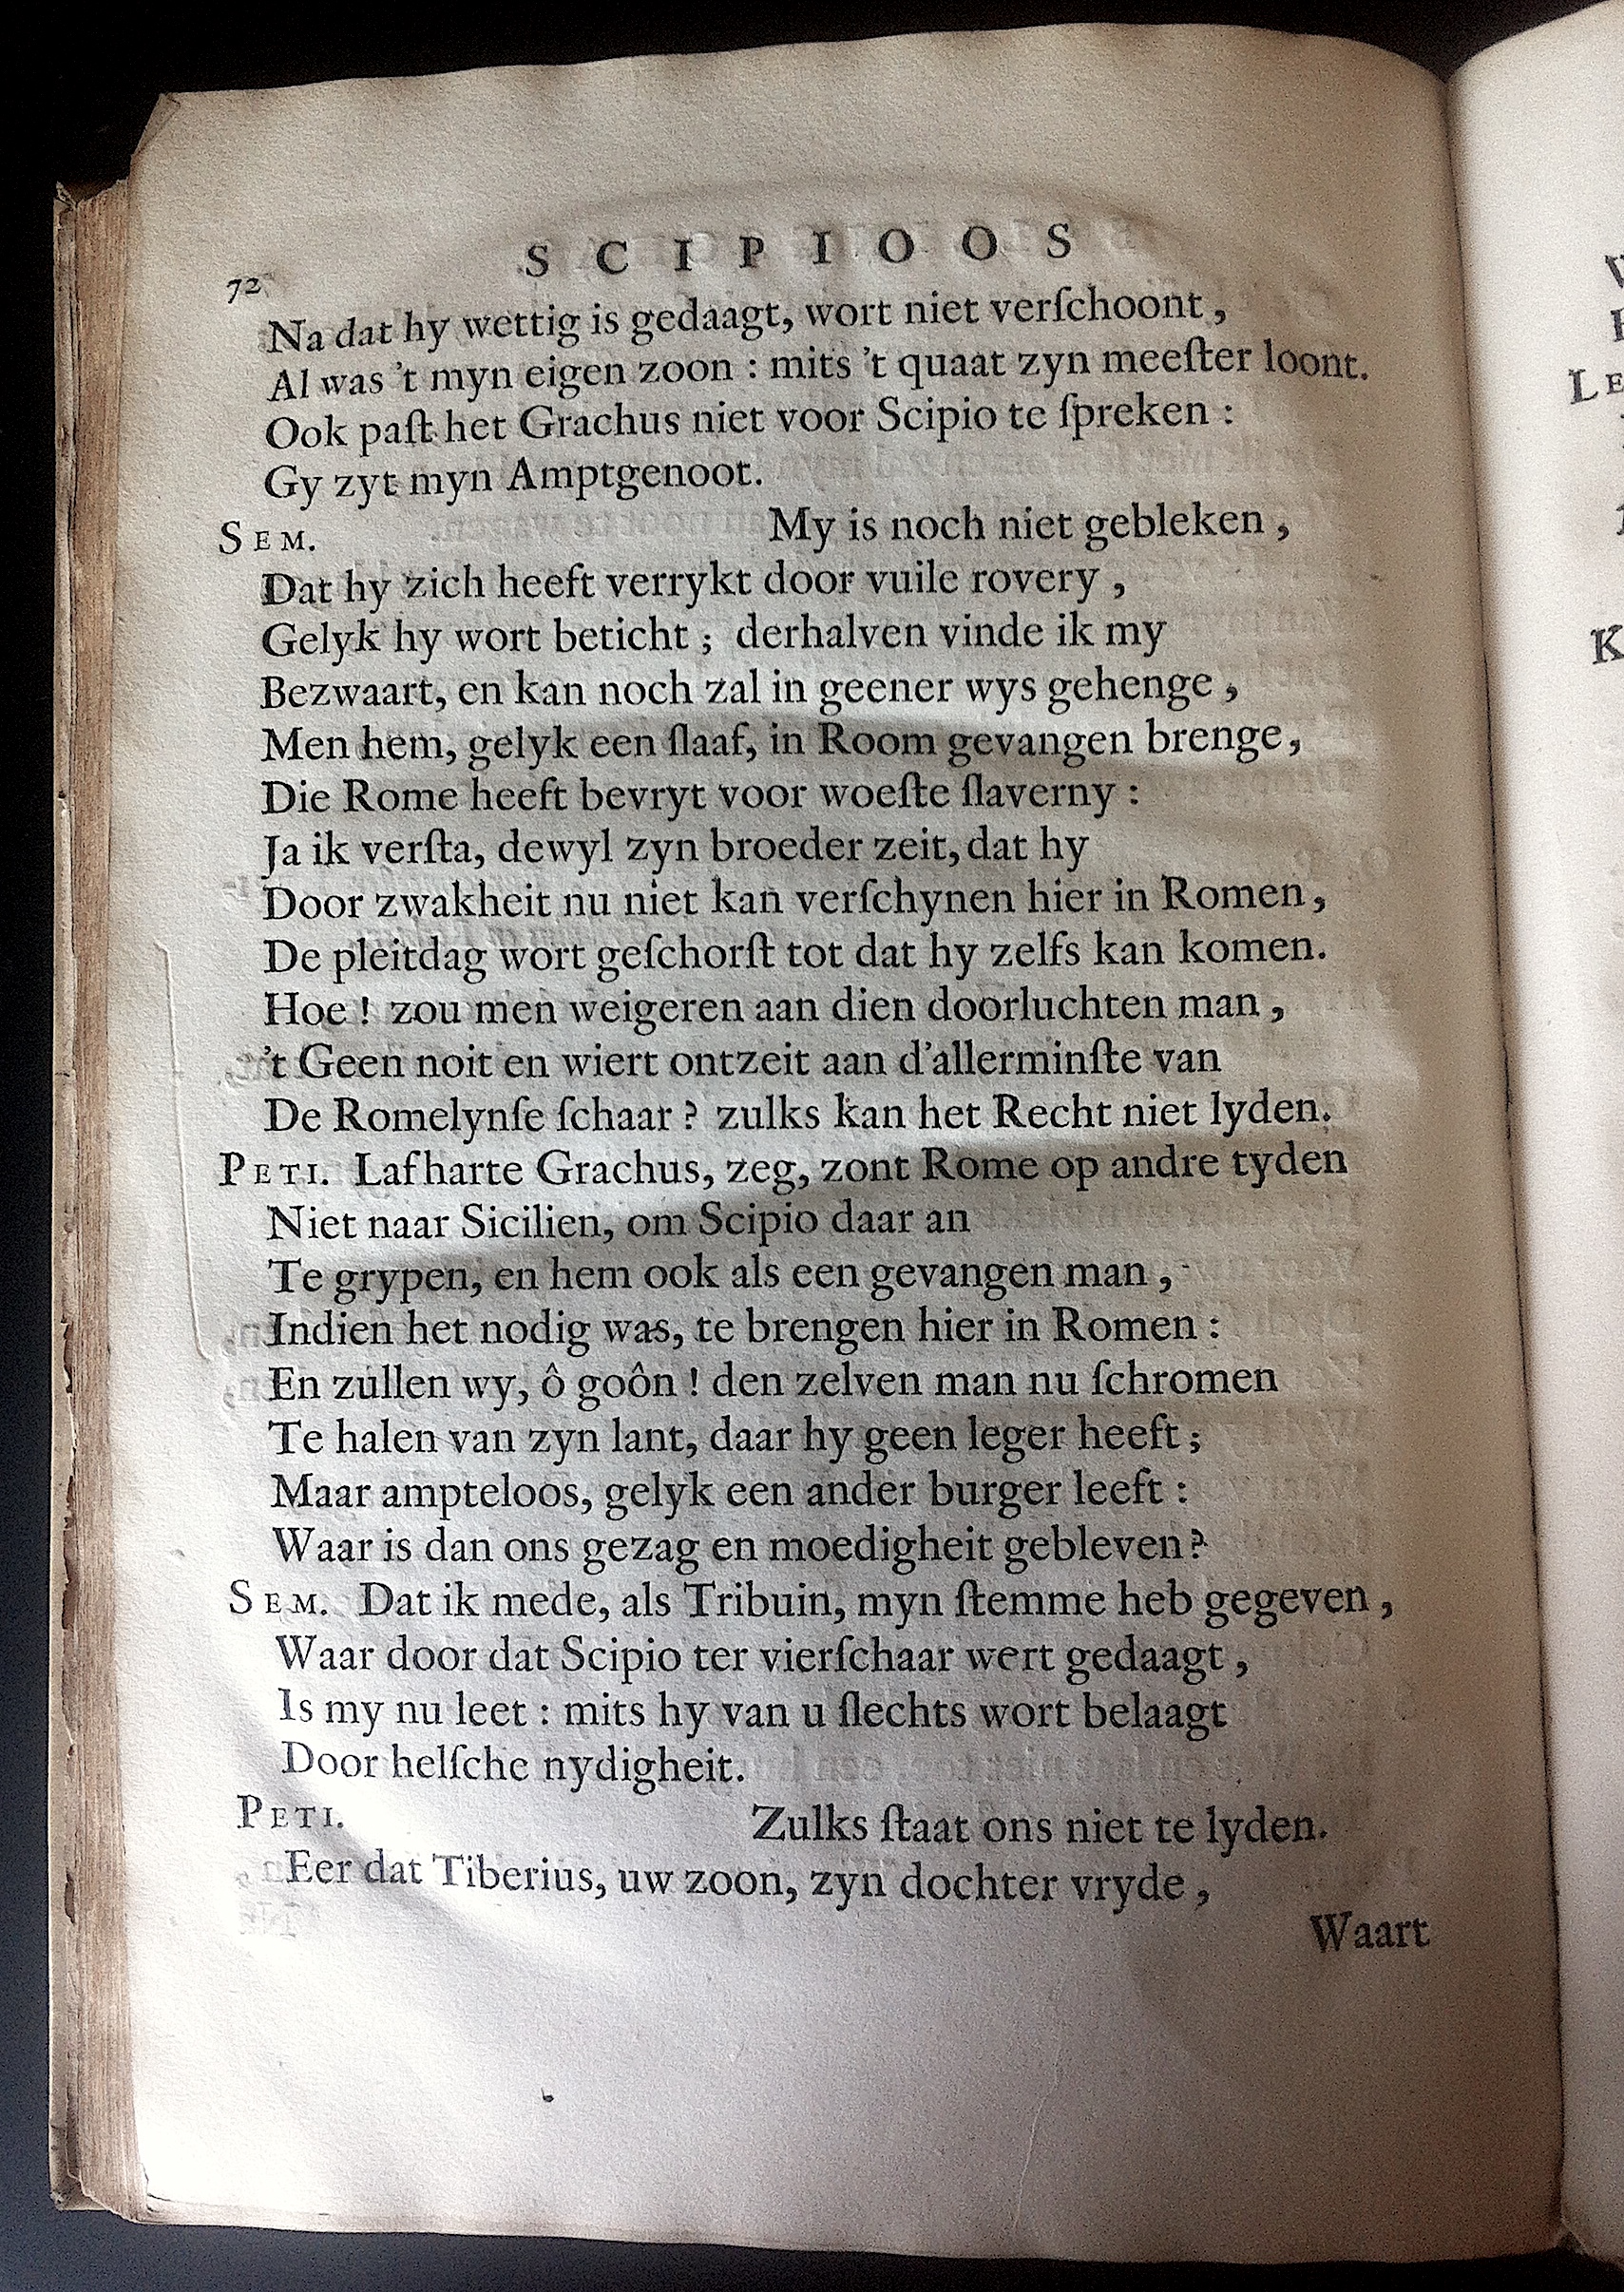 72
S C I P I O O S
Na dat hy wettig is gedaagt, wort niet verſchoont,
Al was 't myn eigen zoon : mits 't quaat zyn meeſter loont.
Ook paſt het Grachus niet voor Scipio te ſpreken :
Gy zyt myn Amptgenoot.
SEM. My is noch niet gebleken,
Dat hy zich heeft verrykt door vuile rovery,
Gelyk hy wort beticht; derhalven vinde ik my
Bezwaart, en kan noch zal in geener wys gehenge,
Men hem, gelyk een ſlaaf, in Room gevangen brenge,
Die Rome heeft bevryt voor woeſte ſlaverny :
Ja ik verſta, dewyl zyn broeder zeit, dat hy
Door zwakheit nu niet kan verſchynen hier in Romen,
De pleitdag wort geſchorſt tot dat hy zelfs kan komen.
Hoe! zou men weigeren aan dien doorluchten man,
't Geen noit en wiert ontzeit aan d'allerminſte van
De Romelynſe ſchaar? zulks kan het Recht niet lyden.
PETI. Lafharte Grachus, zeg, zont Rome op andre tyden
Niet naar Sicilien, om Scipio daar an
Te grypen, en hem ook als een gevangen man,
Indien het nodig was, te brengen hier in Romen :
En zullen wy, ô goôn! den zelven man nu ſchromen
Te halen van zyn lant, daar hy geen leger heeft;
Maar ampteloos, gelyk een ander burger leeft :
Waar is dan ons gezag en moedigheit gebleven?
SEM. Dat ik mede, als Tribuin, myn ſtemme heb gegeven,
Waar door dat Scipio ter vierſchaar wert gedaagt,
Is my nu leet : mits hy van u ſlechts wort belaagt
Door helſche nydigheit.
PETI. Zulks ſtaat ons niet te lyden.
Eer dat Tiberius, uw zoon, zyn dochter vryde,
Waart